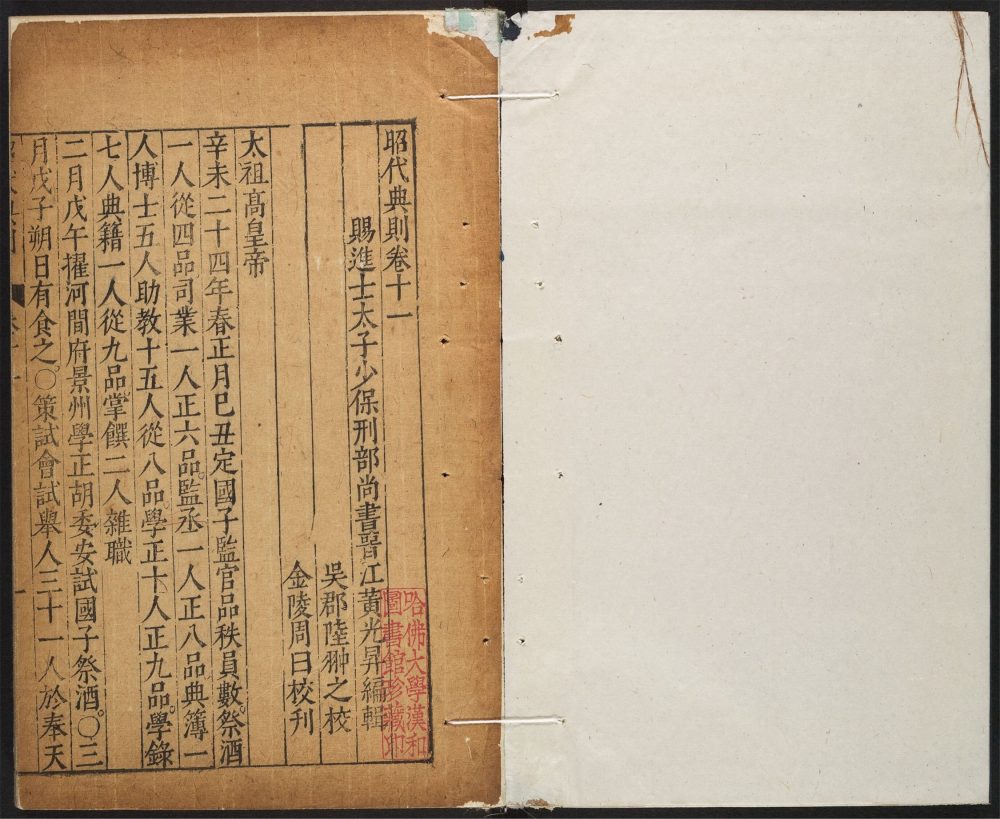 昭代典則卷十一
賜進士太子少保刑部尚書晉江黃光昇編輯
吳郡陸翀之校
金陵周曰校刋
太祖高皇帝
辛未二十四年春正月己丑定國子監官品秩員數祭酒
一人從四品司業一人正六品監丞一人正八品典簿一
人博士五人助教十五人從八品學正十人正九品學錄
七人典籍一人從九品掌饌二人雜職
二月戊午擢河間府景州學正胡委安試國子祭酒○三
月戊子朔日有食之○策試會試舉人三十一人於奉天
哈佛大學漢和
圖書館珍藏印